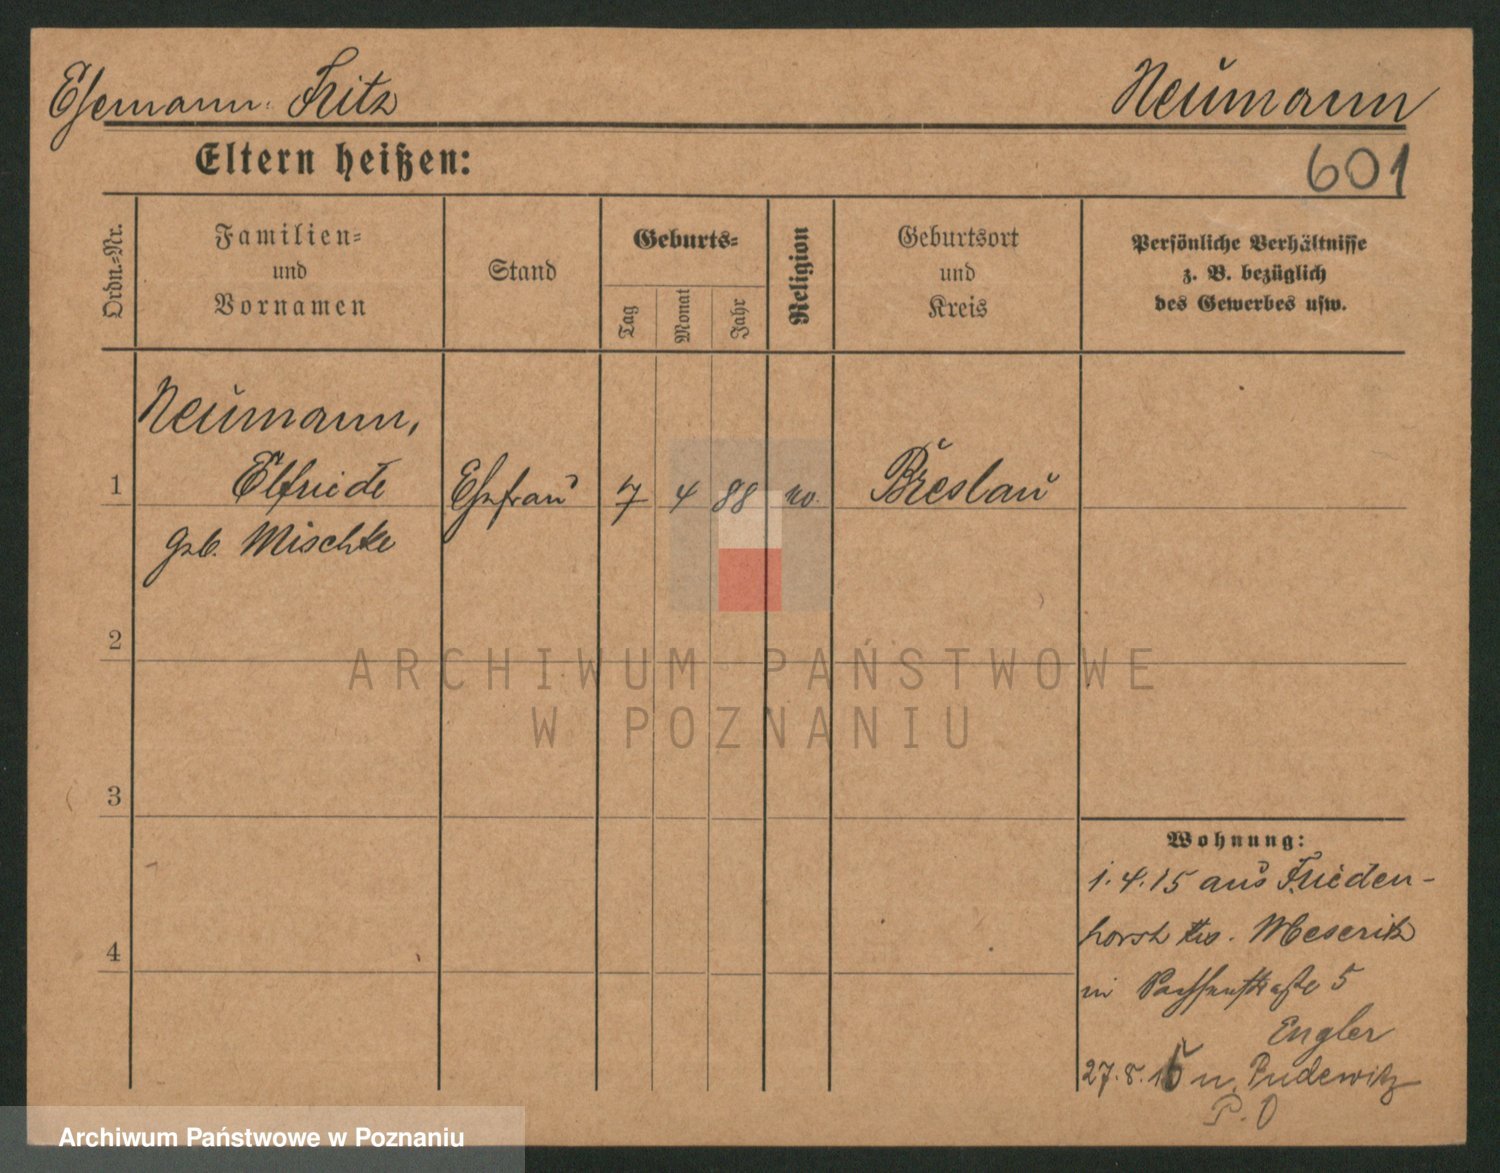 Ehemann: Fritz Neumann
Eltern heißen:
601
Ordn.=Nr.
Familien=
und
Vornamen
Stand
Geburts=
Tag
Monat
Jahr
Religion
Geburtsort
und
Kreis
Persönliche Verhältnisse
z. B. bezüglich
des Gewerbes usw.
Neumann,
1 Elfriede Ehefrau 7 4 88 ev. Breslau
geb. Mischke
2
3
4
Wohnung:
1.4.15 aus Frieden-
horst Krs. Meseritz
in 5
Engler
27.8.15 n. Pudewitz
P. O
ARCHIWUM PAŃSTWOWE
W POZNANIU
Archiwum Państwowe w Poznaniu